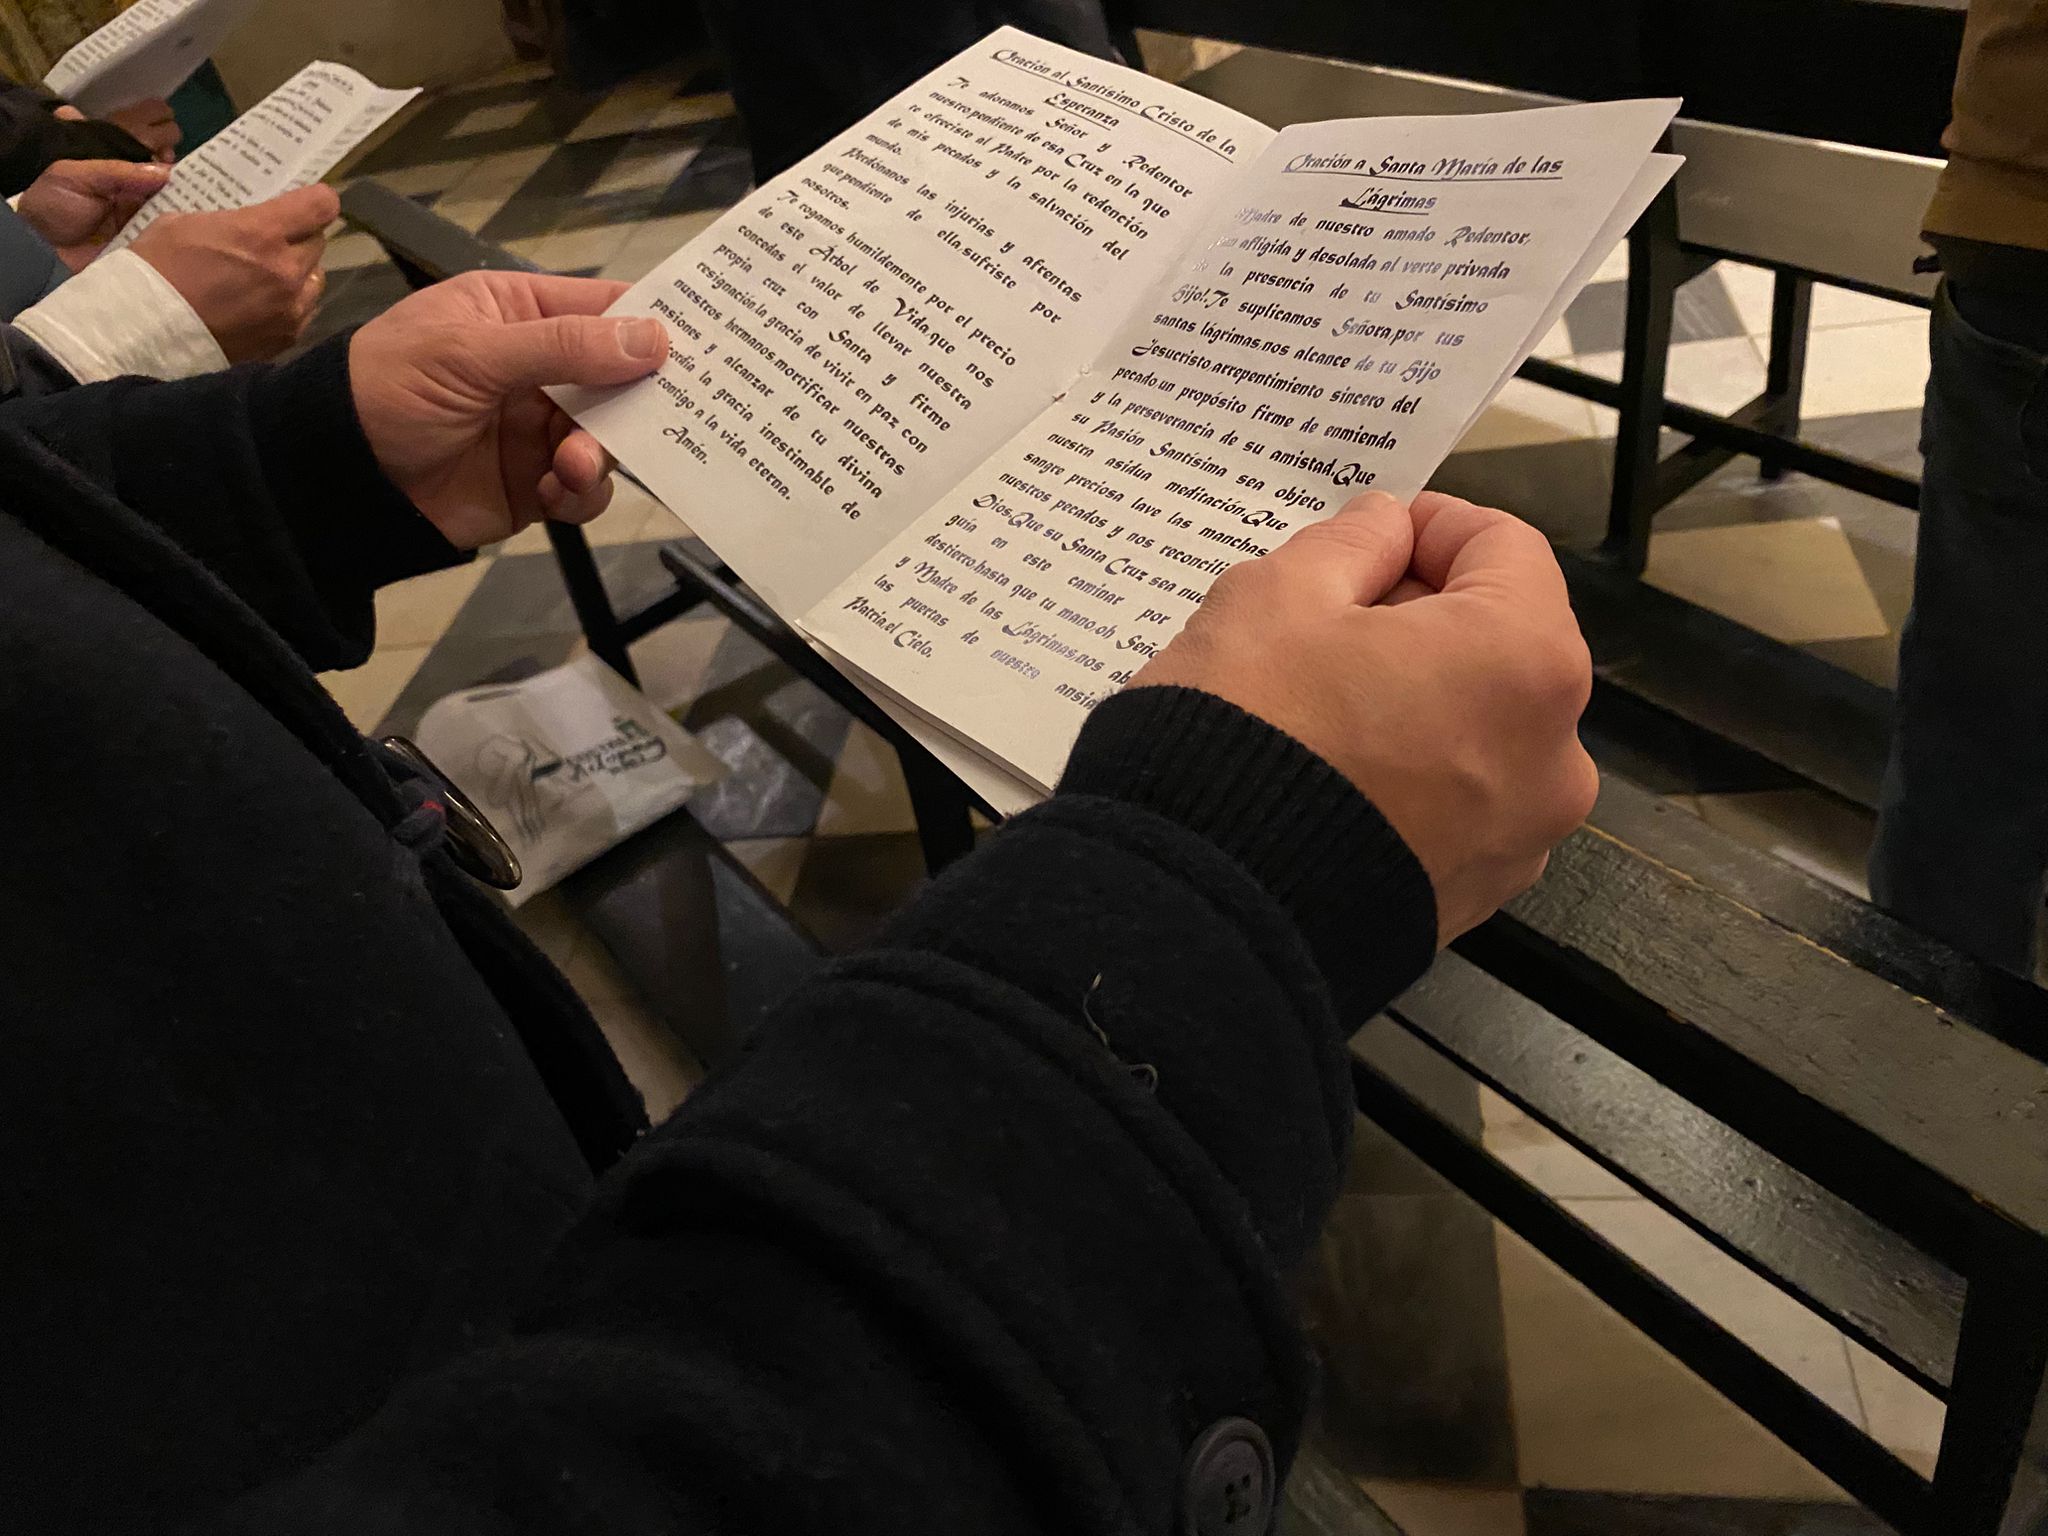 Oración al Santísimo Cristo de la
Esperanza
Te adoramos Señor y Redentor
nuestro,pendiente de esa Cruz en la que
te ofreciste al Padre por la redención
de mis pecados y la salvación del
mundo.
Perdónanos las injurias y afrentas
que,pendiente de ella,sufriste por
nosotros.
Te rogamos humildemente por el precio
de este Árbol de Vida,que nos
concedas el valor de llevar nuestra
propia cruz con Santa y firme
resignación,la gracia de vivir en paz con
nuestros hermanos,mortificar nuestras
pasiones y alcanzar de tu divina
la gracia inestimable de
contigo a la vida eterna.
Amén.
Oración a Santa María de las
Lágrimas
Madre de nuestro amado Redentor,
afligida y desolada al verte privada
de la presencia de tu Santísimo
Hijo!.Te suplicamos Señora,por tus
santas lágrimas,nos alcance de tu Hijo
Jesucristo,arrepentimiento sincero del
pecado,un propósito firme de enmienda
y la perseverancia de su amistad.Que
su Pasión Santísima sea objeto
nuestra asidua meditación.Que
sangre preciosa lave las manchas
nuestros pecados y nos
Dios.Que su Santa Cruz sea
guía en este caminar por
destierro,hasta que tu mano,oh
y Madre de las Lágrimas,nos
las puertas de nuestra
Patria,el Cielo.